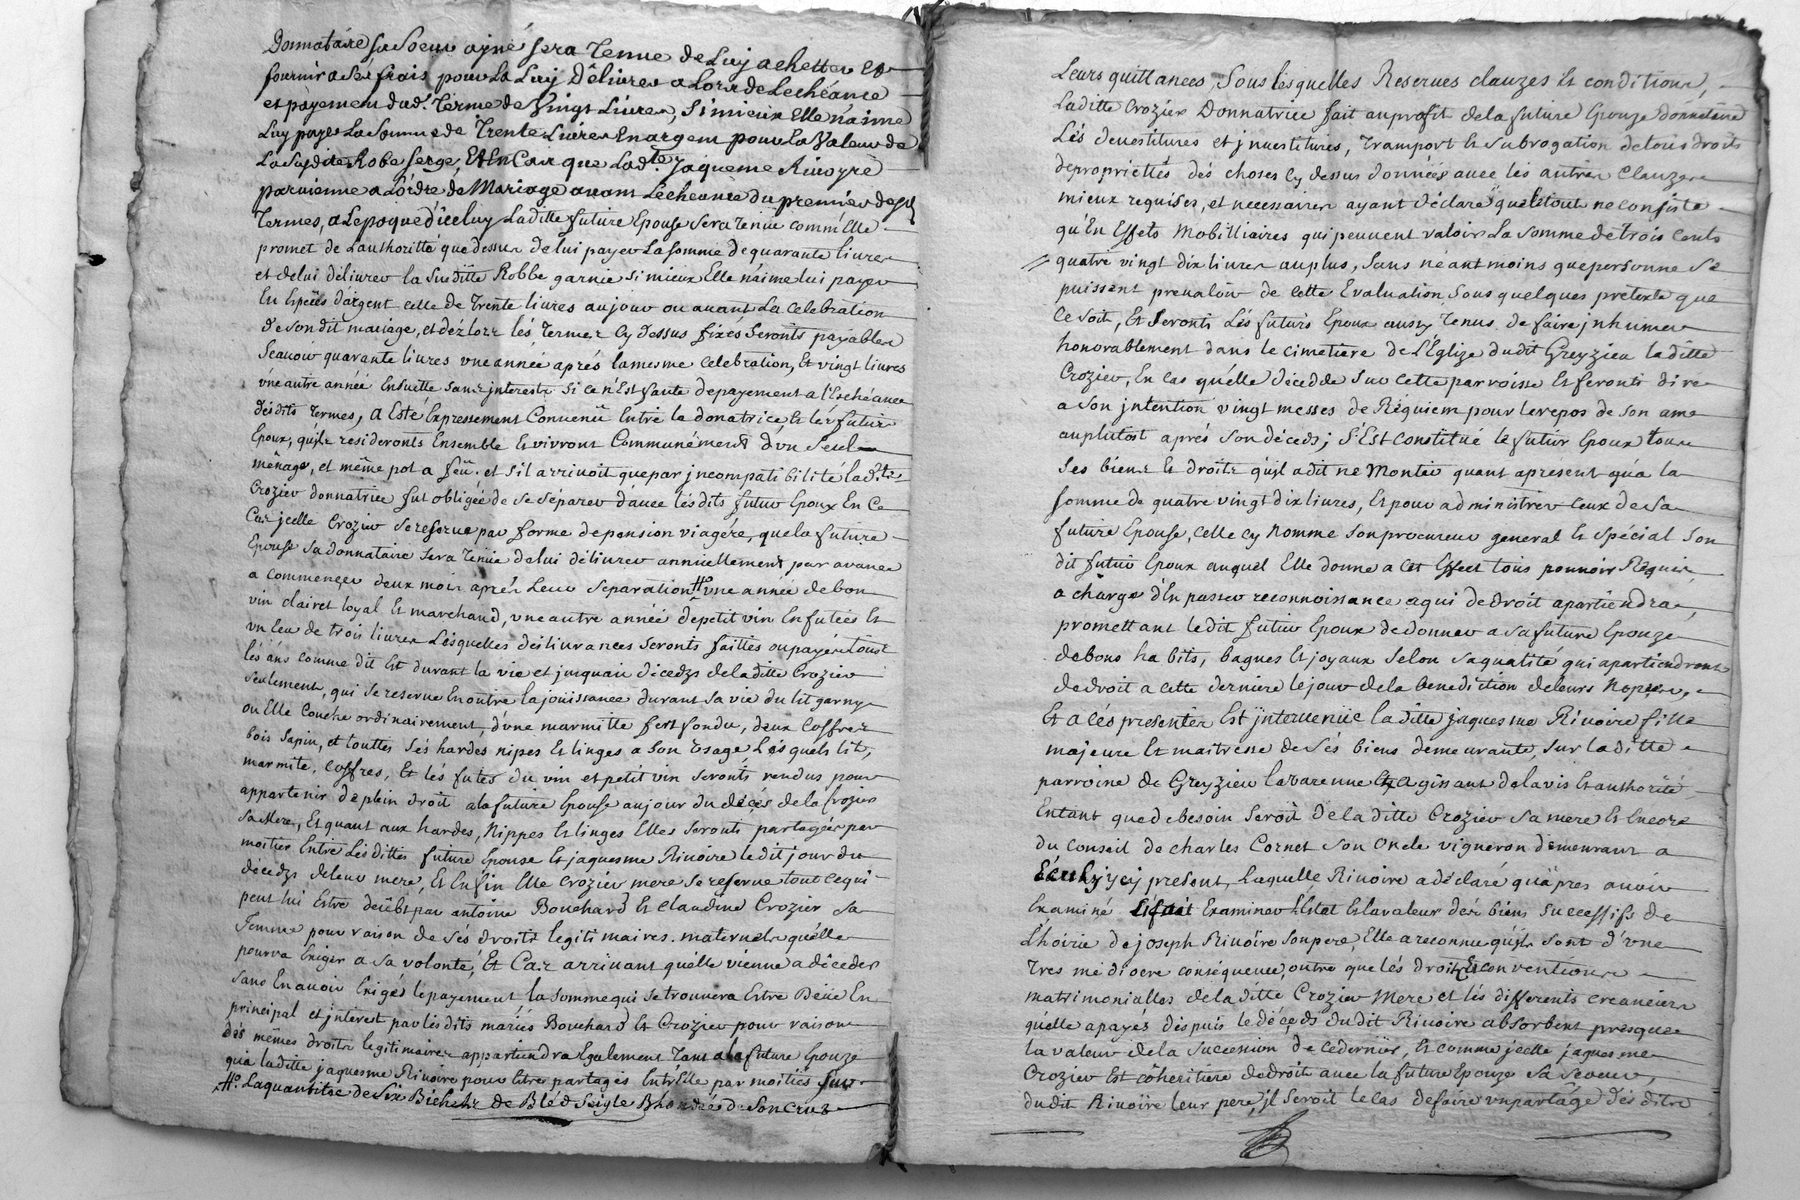 Donnataire sa Soeur aynée sera tenue de Luy achetter et
fournir a Ses frais pour La Luy Délivrer a Lors de Lechéance
et payement dud. terme de vingt Livres, si mieux Elle n'aime
Luy payer La somme de Trente Livres En argent pour La Valeur de
La Susdite Robe serge, Et En Cas que Ladte. Jaqueme Rivoyre
parvienne a L'ordre de Mariage avant L'echeance du premier desd.
Termes, a Lepoque d'iceluy Laditte future Epouse Sera tenüe comme Elle
promet de Lauthoritté que dessus de lui payer La somme de quarante livres
et de lui délivrer la Susditte Robbe garnie si mieux Elle n'aime lui payer
En Espèces d'argent celle de trente livres au jour ou avant La Celebration
de son dit mariage, et dèz lors lés termes Cy dessus fixés seronts payables
Scavoir quarante livres une année aprés la mesme Celebration, Et vingt livres
une autre année Ensuitte sans jnterests si ce n'Est faute de payement a l'Eschéance
desdits termes, a Esté Expressement Convenü Entre la donatrice Et lés futurs
Epoux, qu'ils resideronts Ensemble Et vivront Communément d'un seul
ménage, et même pot a feu. et s'il arrivoit que par jncompatibilité ladte.
Crozier donnatrice fut obligée de Se Séparer d'avec lésdits futur Epoux En Ce
Cas jcelle Crozier Se reserve par forme de pension viagére, que la future
Epouse sa donnataire sera tenüe de lui délivrer annuellement par avance
a commencer deux mois aprés Leur Séparation # une année de bon
vin clairet loyal Et marchand, une autre année de petit vin En futées Et
un Ecu de trois livres Lésquelles délivrances seronts faittes ou payées touts
lés ans comme dit Est durant la vie et jusqu'au décedz de laditte Crozier
Seulement, qui se reserve En outre la joüissance durant sa vie du lit garny
ou Elle Couche ordinairement, d'une marmitte fert fondu, deux Coffres
bois sapin, et touttes Sés hardes nipes Et linges a son usage Lésquels lit,
marmite, Coffres, Et lés futes du vin et petit vin seronts rendus pour
appartenir de plein droit a la future Epouse au jour du décés de la Crozier
sa Mere, Et quant aux hardes, Nippes Et linges Elles Seronts partagées par
moitiés Entre Lés dittes future Epouse Et jaquesme Rivoire le dit jour du
décedz de leur mere, Et Enfin Elle Crozier mere se reserve tout ce qui
peut lui Estre deübt par antoine Bouchard Et Claudine Crozier sa
Femme pour raison de Sés droits legitimaires maternels qu'élle
pourra Exiger a sa volonté, Et Cas arrivant qu'élle vienne a décéder
sans En avoir Exigés le payement, la somme qui se trouvera Estre Deüe En
principal et jnterest par lésdits mariés Bouchard Et Crozier pour raison
dés mêmes droits legitimaires appartiendra Egalement tant a la future Epouze
qu'a laditte jaquesme Rivoire pour Estre partagés Entr'Elle par moitiés sur
#. La quantitée de Six Bichets de Bléd Seigle de Son Cruz
Leurs quittances, Sous lésquelles Reserves clauzes Et conditions,
Laditte Crozier Donnatrice fait au profit de la future Epouze donnataire
Lés devestitures et jnvestitures, transport Et subrogation de tous droits
de propriettés dés choses cy dessus données avec lés autres Clauzes
mieux requises, et necessaires ayant déclaré que le tout ne consiste
qu'En Effets Mobilliaires qui peuvent valoir La somme de trois Cents
quatre vingt dix livres au plus, sans néantmoins que personne se
puissent prevaloir de Cette Evaluation Sous quelques pretexte que
Ce soit, Et Seronts Lés futurs Epoux aussy tenus de faire jnhumer
honorablement dans le cimetiére de L'Eglize dudit Greyzieu laditte
Crozier, En cas qu'élle décedde sur cette parroisse Et feronts dire
a Son jntention vingt messes de Requiem pour le repos de son ame
au plutost aprés son décedz; S'Est constitué le futur Epoux tous
Ses biens Et droits qu'jl a dit ne Monter quant a présent qu'a la
somme de quatre vingt dix livres, Et pour administrer Ceux de sa
future Epouse, Celle cy Nomme Son procureur general Et Spécial Son
dit futur Epoux auquel Elle donne a Cet Effect tous pouvoirs Requis
a charge d'En passer reconnoissance a qui de droit apartiendra,
promettant le dit futur Epoux de donner a sa future Epouze
de bons habits, bagues Et joyaux selon sa qualité qui apartiendront
de droit a cette derniere le jour de la benediction de leurs Nopces.
Et a cés presentes Est jntervenüe laditte jaquesme Rivoire fille
majeure Et maitresse de Sés biens demeurante, sur laditte
parroisse de Greyzieu lavarenne agissant de lavis Et authorité
Entant que de besoin Seroit de la ditte Crozier sa mere Et Encore
du Conseil de charles Cornet son oncle vigneron demeurant a
Ecully ycy présent, Laquelle Rivoire a déclaré qu'äpres avoir
Examiné Et fait Examiner L'Etat Et la valeur dés biens Successifs de
L'hoirie de joseph Rivoire son pere, Elle a reconnu qu'ils sont d'une
tres médiocre conséquence, outre que lés droits Et conventions
matrimonialles de la ditte Crozier Mere et lés differents creanciers
qu'elle a payés dèspuis le décedz dudit Rivoire absorbent presque
la valeur de la Succession de Ce dernier, Et comme jcelle jaquesme
Crozier Est cöheritiere de droit avec la future Epouze sa soeur,
dudit Rivoire leur pere, jl Seroit le cas de faire un partage dés dits